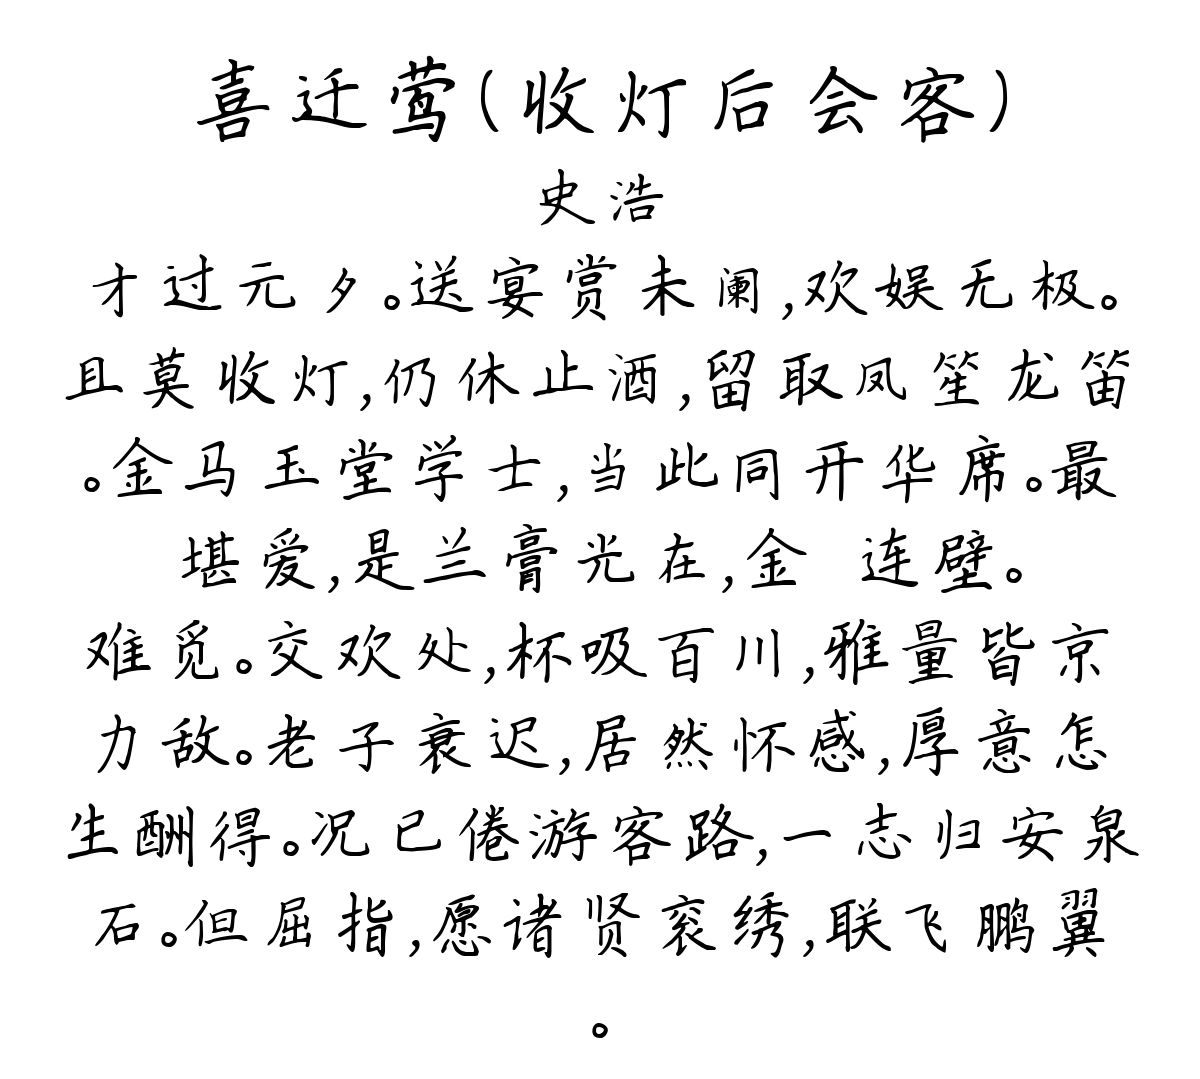 喜迁莺(收灯后会客)
史浩
才过元夕。送宴赏未阑,欢娱无极。
且莫收灯,仍休止酒,留取凤笙龙笛
。金马玉堂学士,当此同开华席。最
堪爱,是兰膏光在,金 连壁。
难觅。交欢处,杯吸百川,雅量皆京
力敌。老子衰迟,居然怀感,厚意怎
生酬得。况已倦游客路,一志归安泉
石。但屈指,愿诸贤衮绣,联飞鹏翼
。